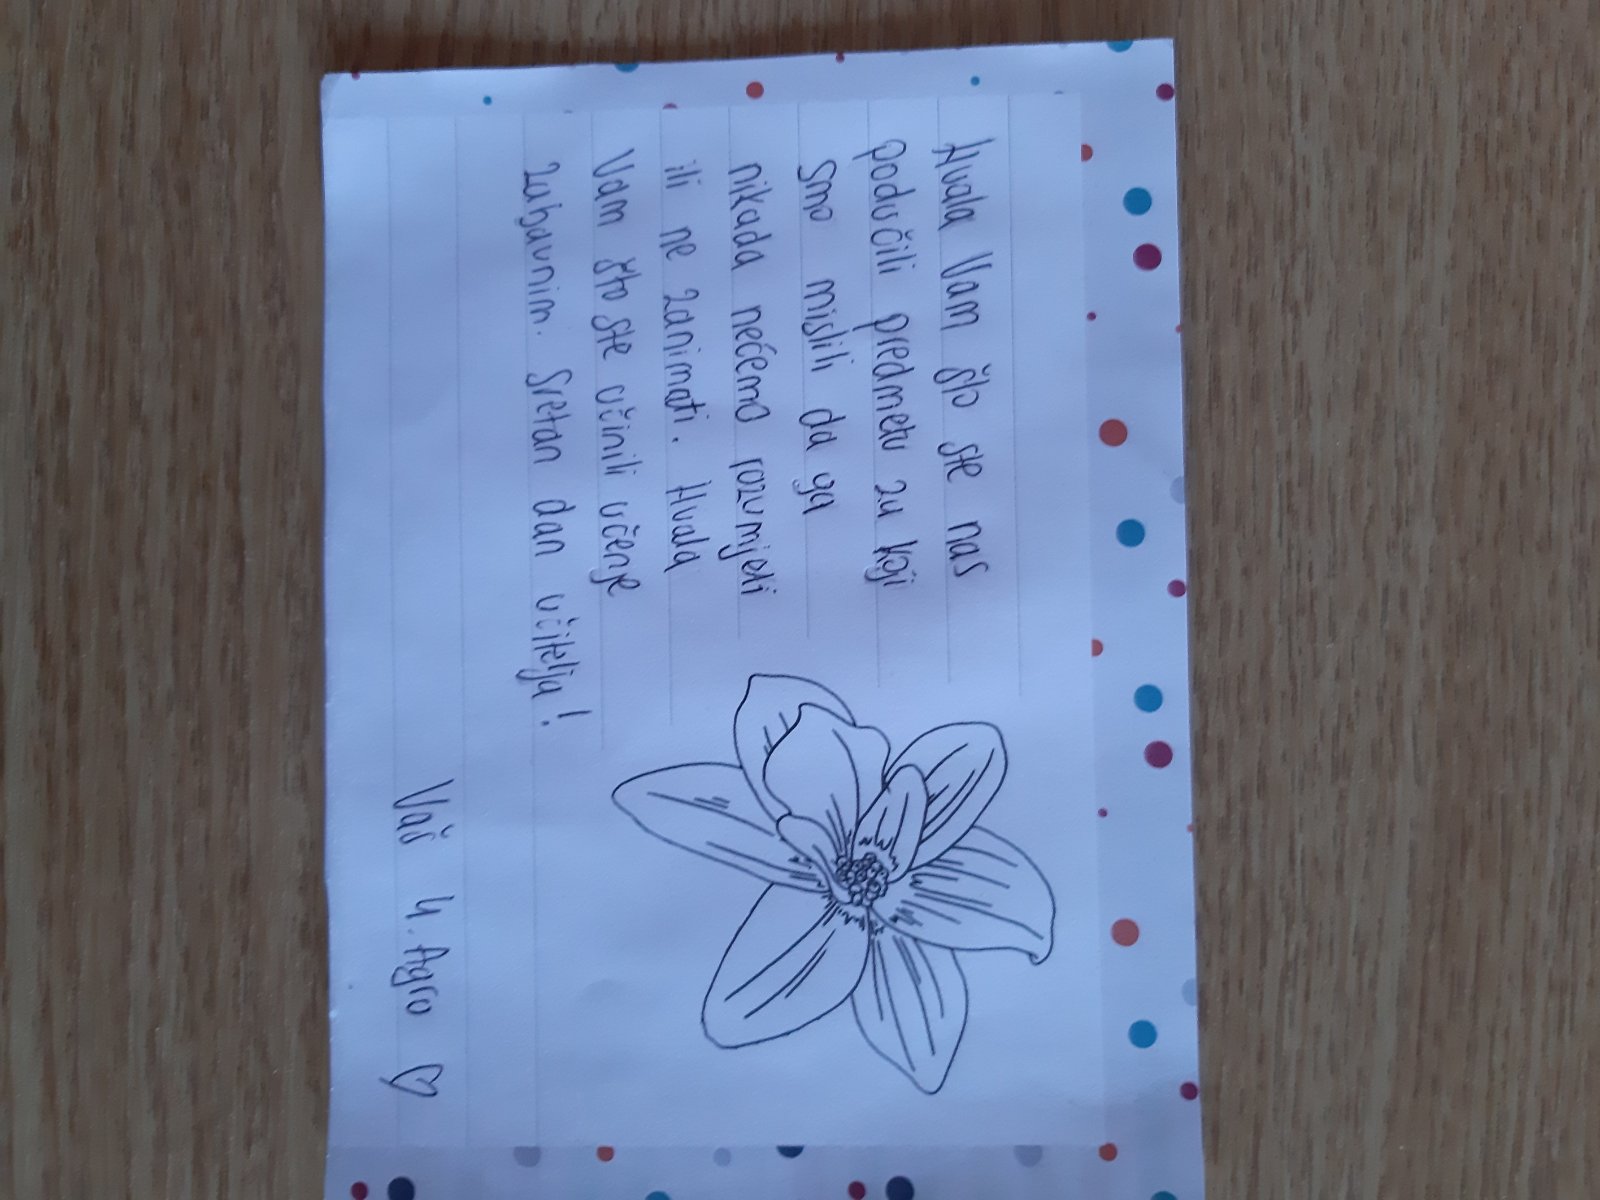 Hvala Vam što ste nas
podučili predmetu za koji
smo mislili da ga
nikada nećemo razumjeti
ili ne zanimati. Hvala
Vam što ste učinili učenje
zabavnim. Sretan dan učitelja!
Vaš 4. Agro ♡